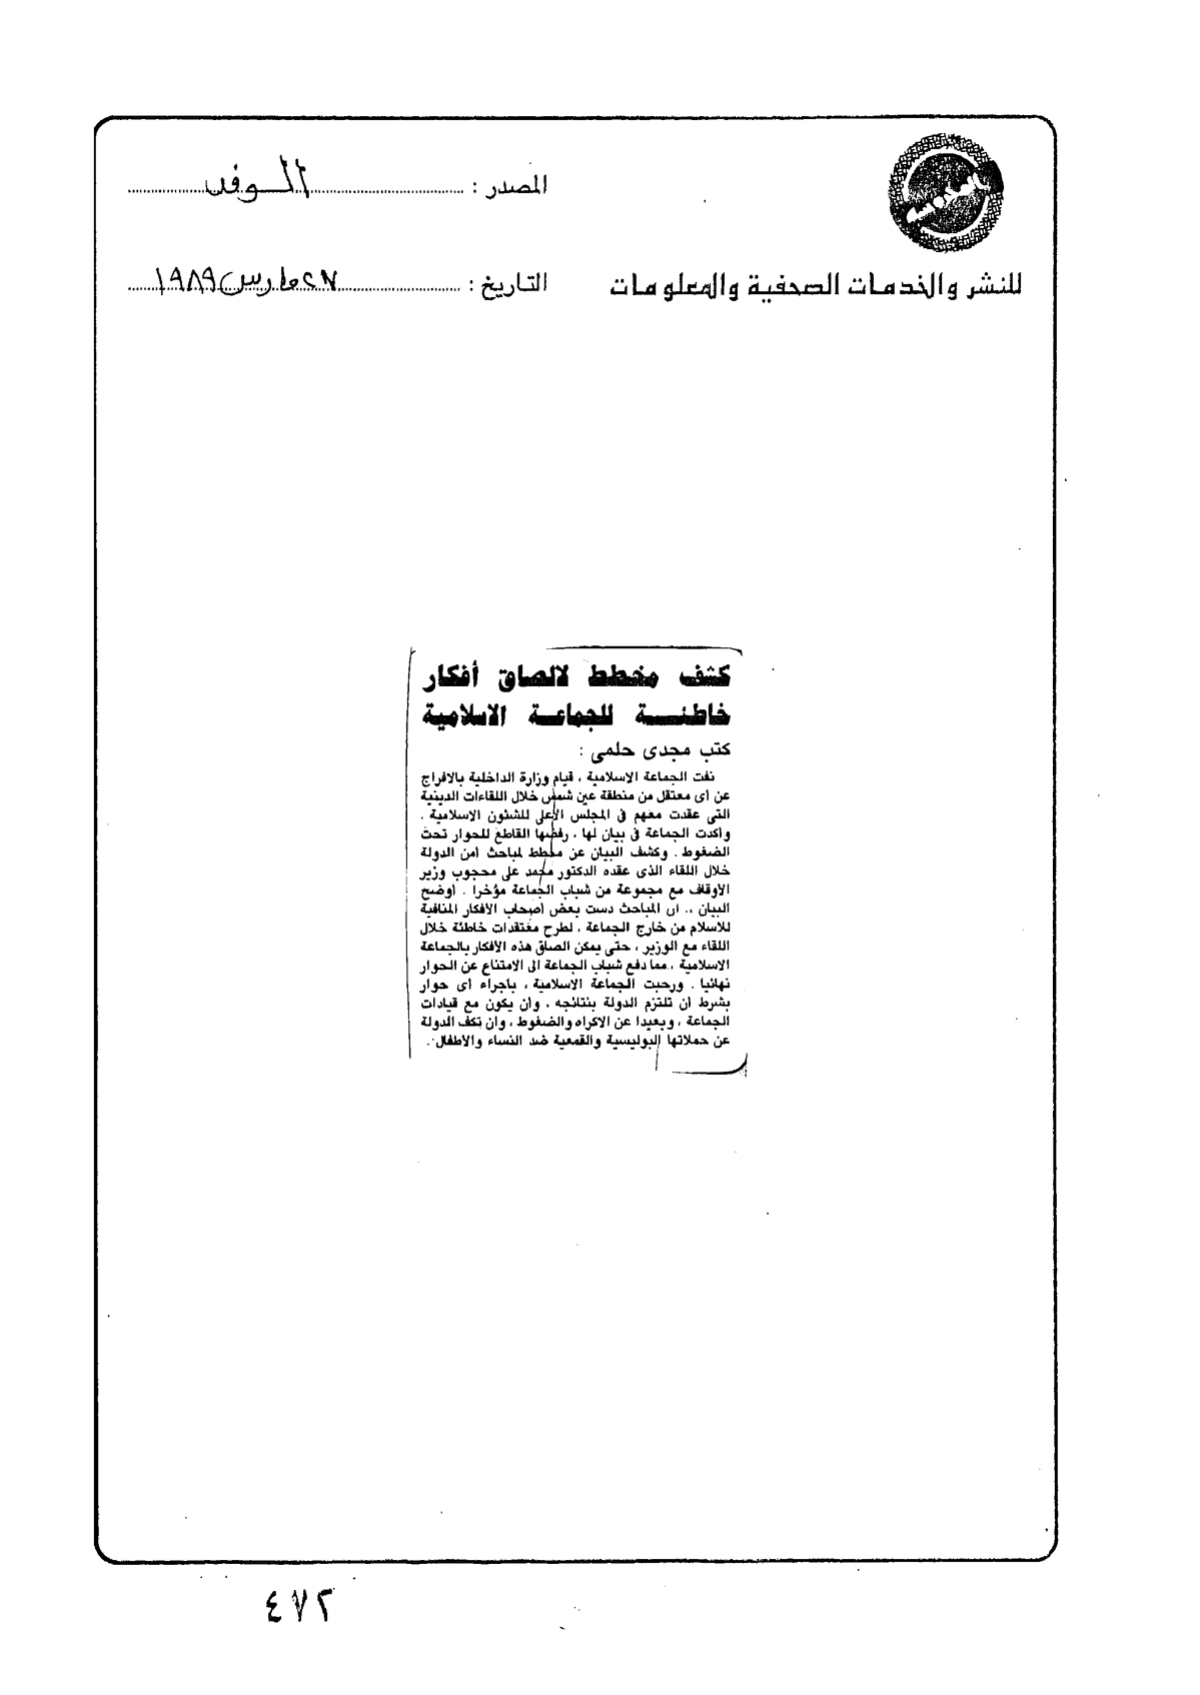 المصدر : الوفد
للنشر والخدمات الصحفية والمعلومات
التاريخ : ٢٧ مارس ١٩٨٩
كشف مخطط لالصاق أفكار
خاطئة للجماعة الاسلامية
كتب مجدى حلمى :
نفت الجماعة الاسلامية ، قيام وزارة الداخلية بالافراج
عن أى معتقل من منطقة عين شمس خلال اللقاءات الدينية
التى عقدت معهم فى المجلس الأعلى للشئون الاسلامية .
واكدت الجماعة فى بيان لها ، رفضها القاطع للحوار تحت
الضغوط . وكشف البيان عن مخطط لمباحث أمن الدولة
خلال اللقاء الذى عقده الدكتور محمد على محجوب وزير
الأوقاف مع مجموعة من شباب الجماعة مؤخرا . أوضح
البيان .. ان المباحث دست بعض أصحاب الأفكار المنافية
للاسلام من خارج الجماعة ، لطرح معتقدات خاطئة خلال
اللقاء مع الوزير ، حتى يمكن الصاق هذه الأفكار بالجماعة
الاسلامية ، مما دفع شباب الجماعة الى الامتناع عن الحوار
نهائيا . ورحبت الجماعة الاسلامية ، باجراء أى حوار
بشرط ان تلتزم الدولة بنتائجه ، وأن يكون مع قيادات
الجماعة ، وبعيدا عن الاكراه والضغوط ، وان تكف الدولة
عن حملاتها البوليسية والقمعية ضد النساء والاطفال .
٤٧٢